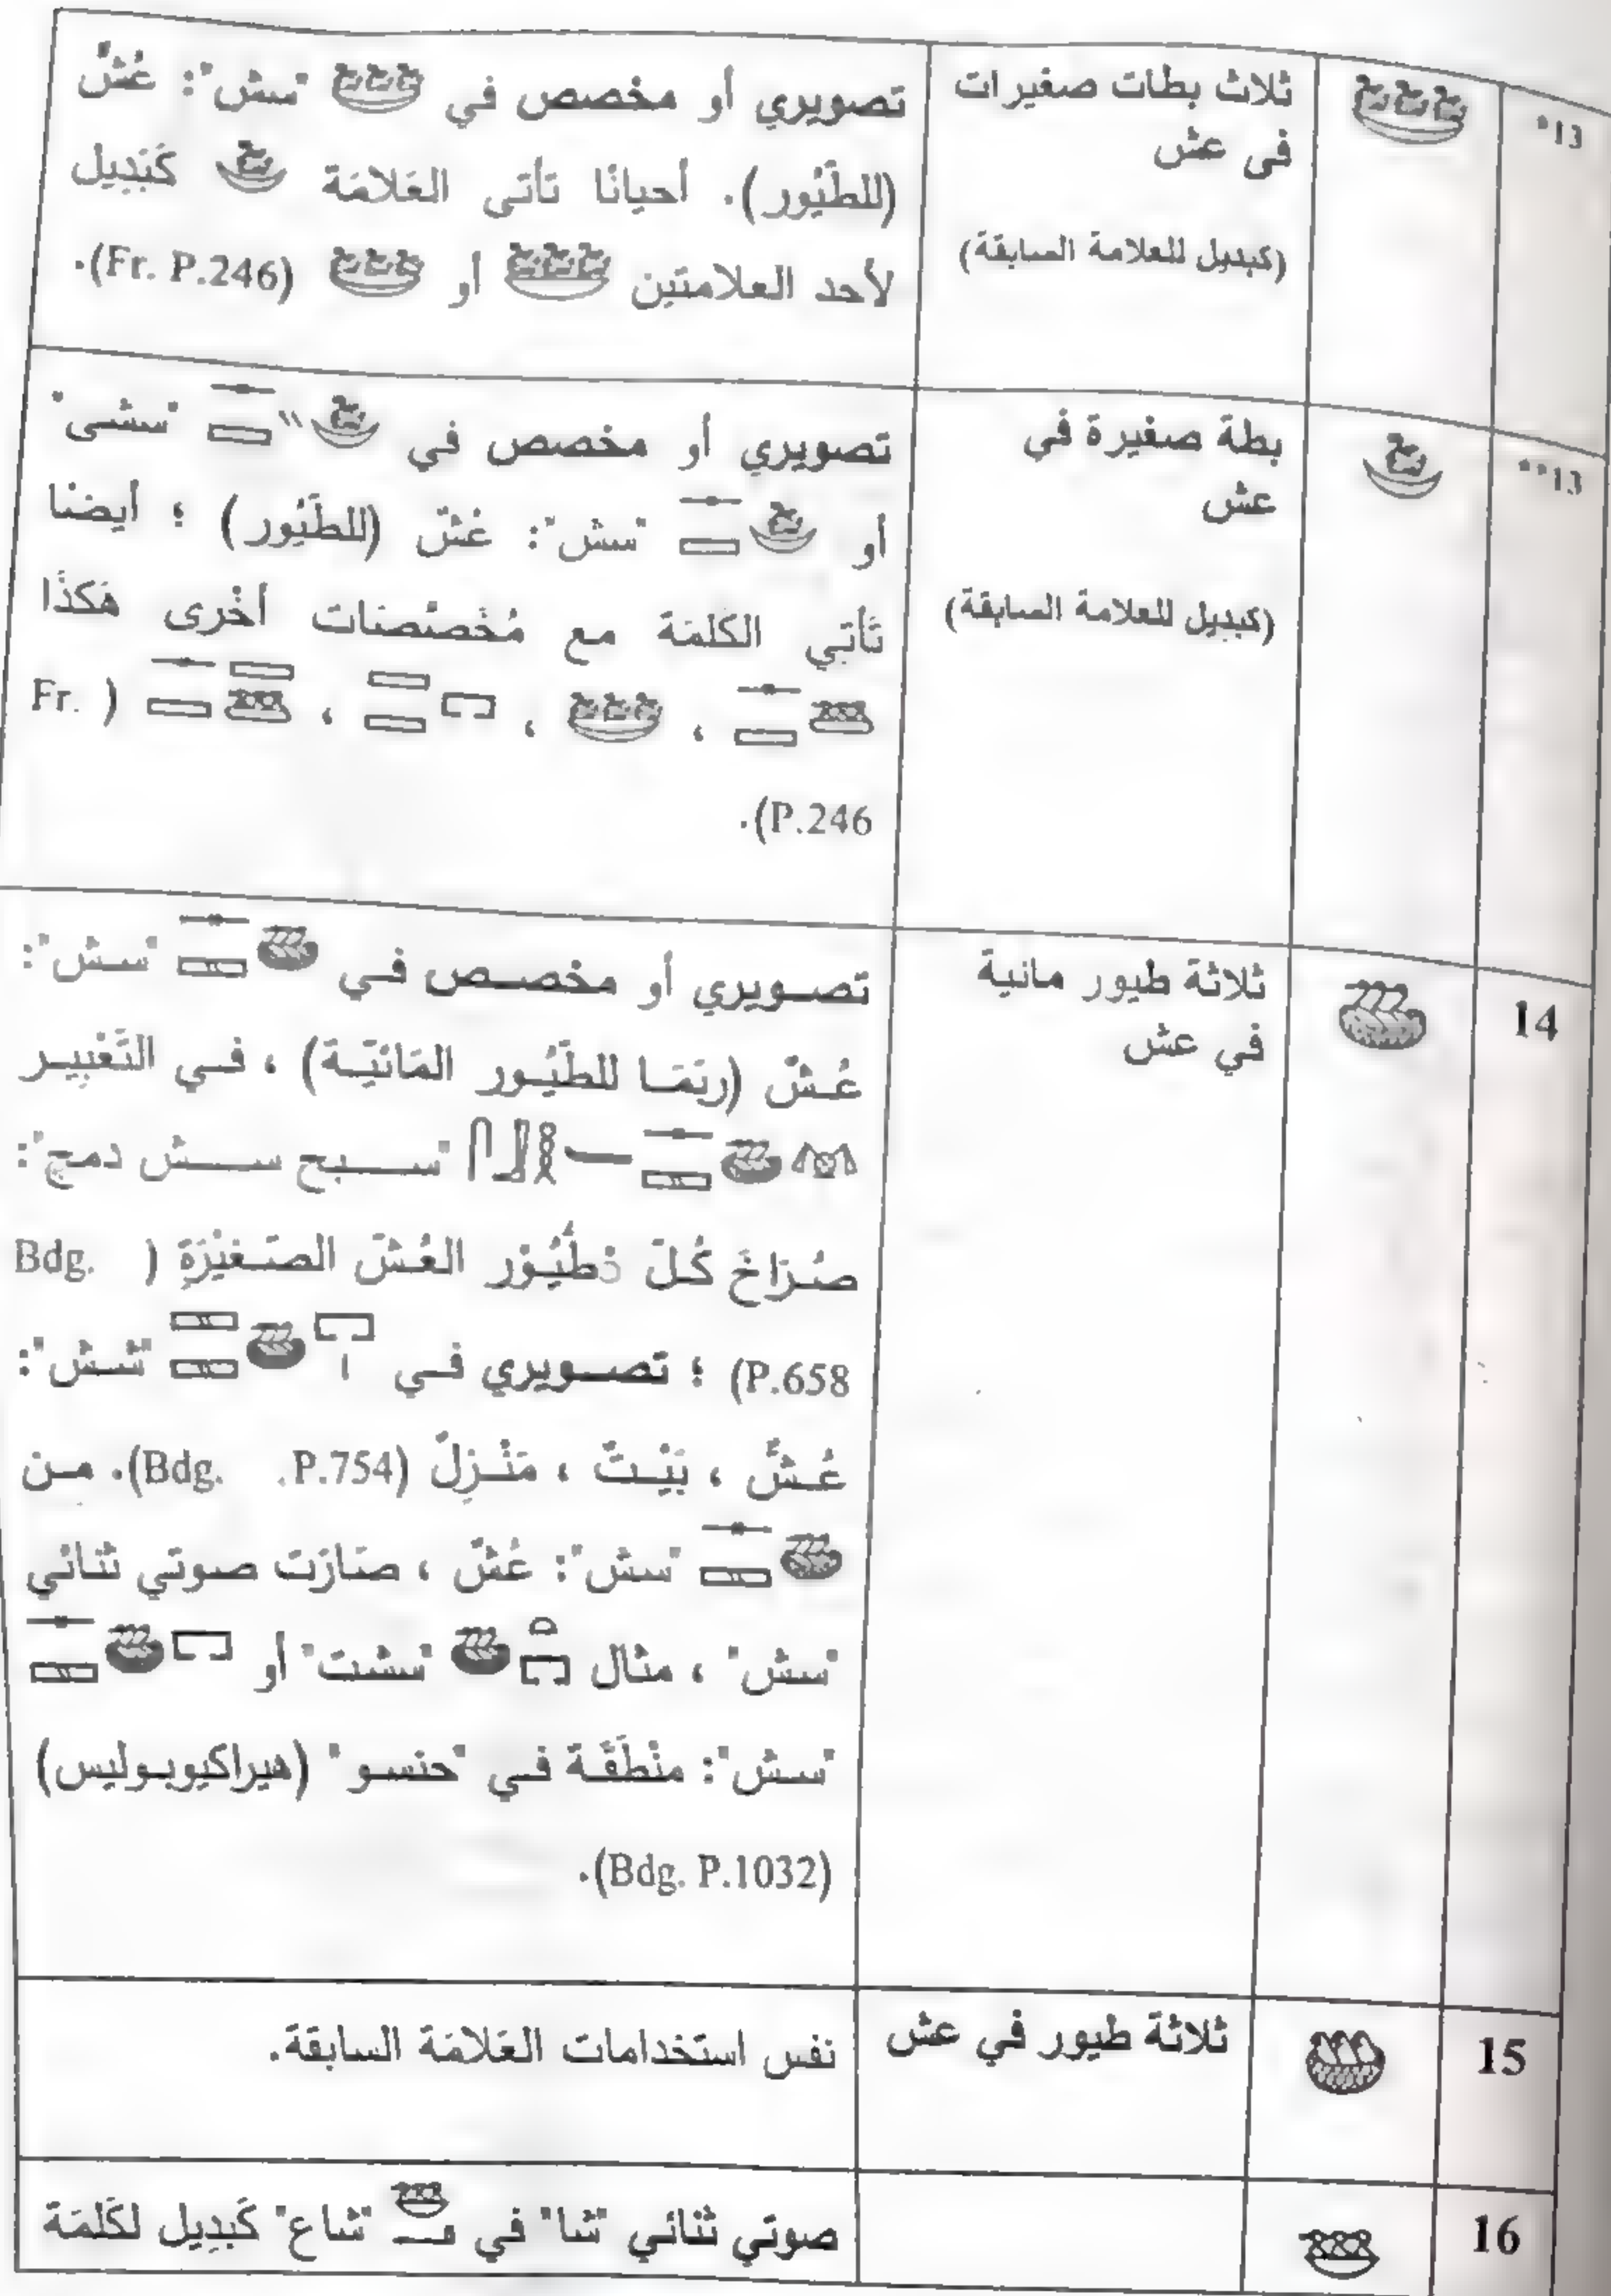 13*
ثلاث بطات صغيرات
فى عش
(كبديل للعلامة السابقة)
تصويري أو مخصص في "سش": عُشٌّ
(للطُيُور). أحيانًا تأتى العَلامَة كَبَدِيل
لأحد العلامتين أو (Fr. P.246).
13**
بطة صغيرة في
عش
(كبديل للعلامة السابقة)
تصويري أو مخصص في "سشى"
أو "سش": عُشّ (للطُيُور) ؛ أيضًا
تَأتِي الكَلمَة مع مُخَصَّصَات أخْرى هَكذَا
، ، ، ( Fr.
P.246).
14
ثلاثة طيور مائية
في عش
تصويري أو مخصص في "سش":
عُشّ (ربَمَا للطُيُور المَائيَّة) ، في التَّعْبِير
"سبح سش دمج":
صُرَاخَ كُلّ طُيُوْر العُشّ الصَغيْرَةِ ( Bdg.
P.658) ؛ تصويري في "شش":
عُشٌّ ، بَيْتٌ ، مَنْزِلٌ (Bdg. .P.754). من
"سش": عُشّ ، صَارَت صوتي ثنائي
"سش" ، مثال "سشت" أو
"سش": منْطَقَة في "حنسو" (هيراكيوبوليس)
(Bdg. P.1032).
15
ثلاثة طيور في عش
نفس استخدامات العَلامَة السابقة.
16
صوتي ثنائي "شا" في "شاع" كَبدِيل لكَلمَة